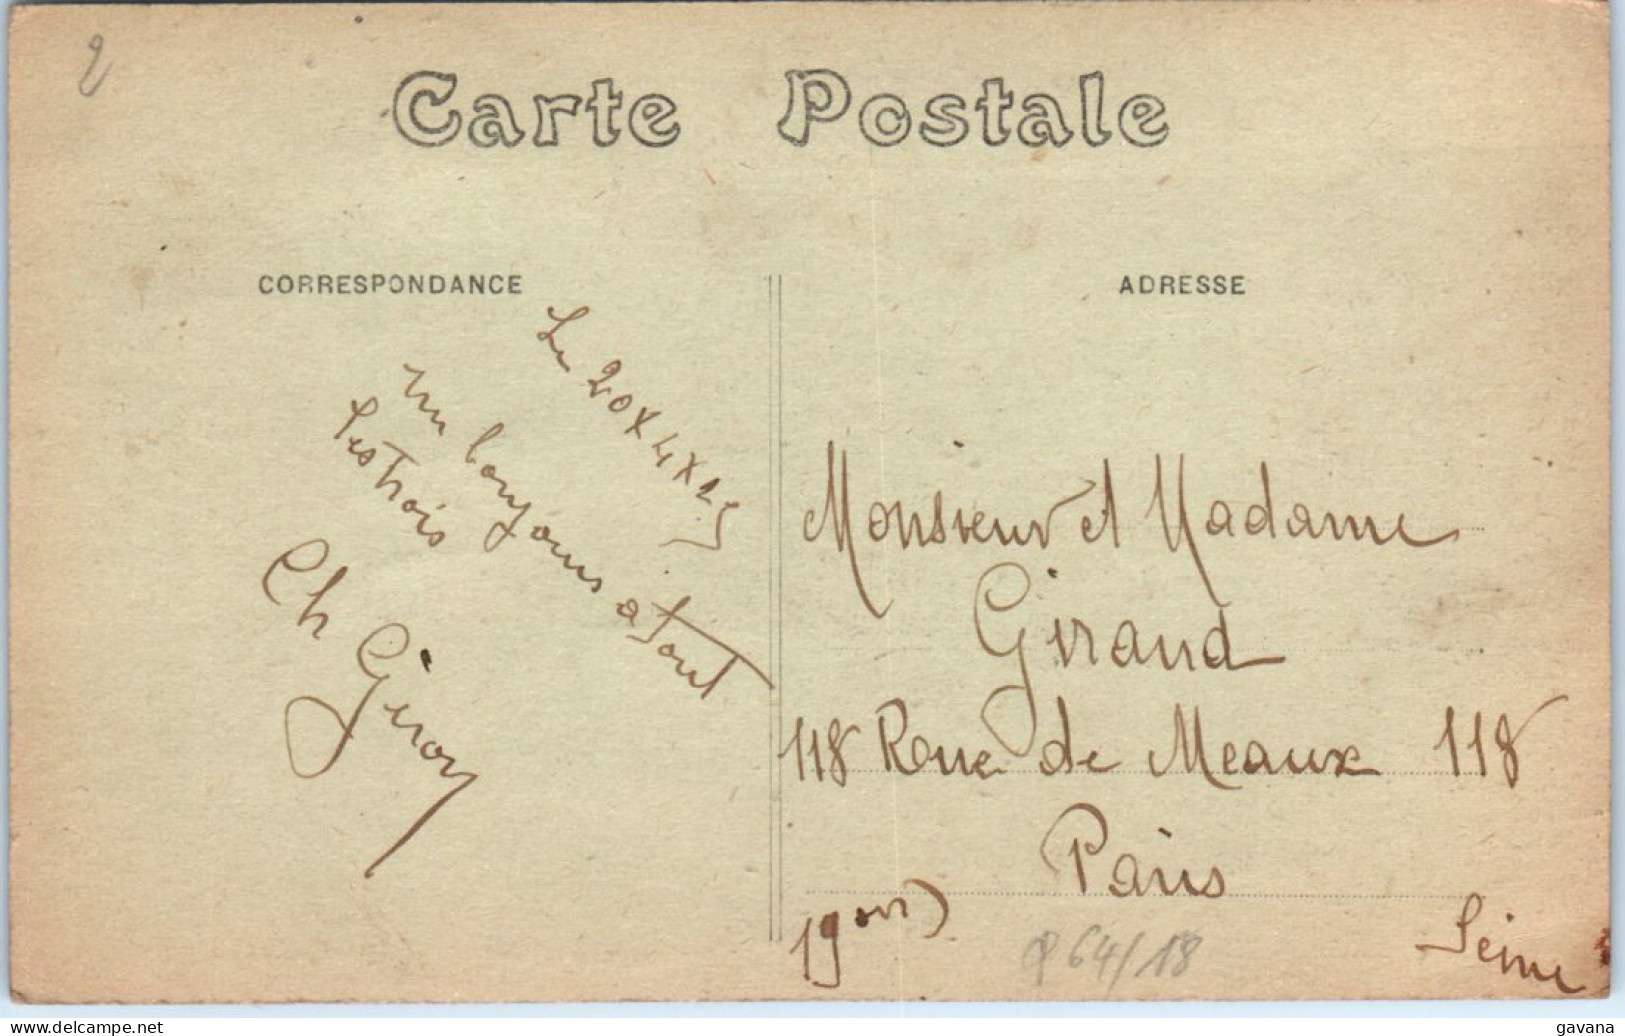 2
Carte Postale
CORRESPONDANCE
ADRESSE
Le 20 X 4 X 25
un bonjour a tout
les trois
Ch Giroy
Monsieur et Madame
Giraud
118 Rue de Meaux 118
Paris
19
Seine
64/18
delcampe.net
gavana